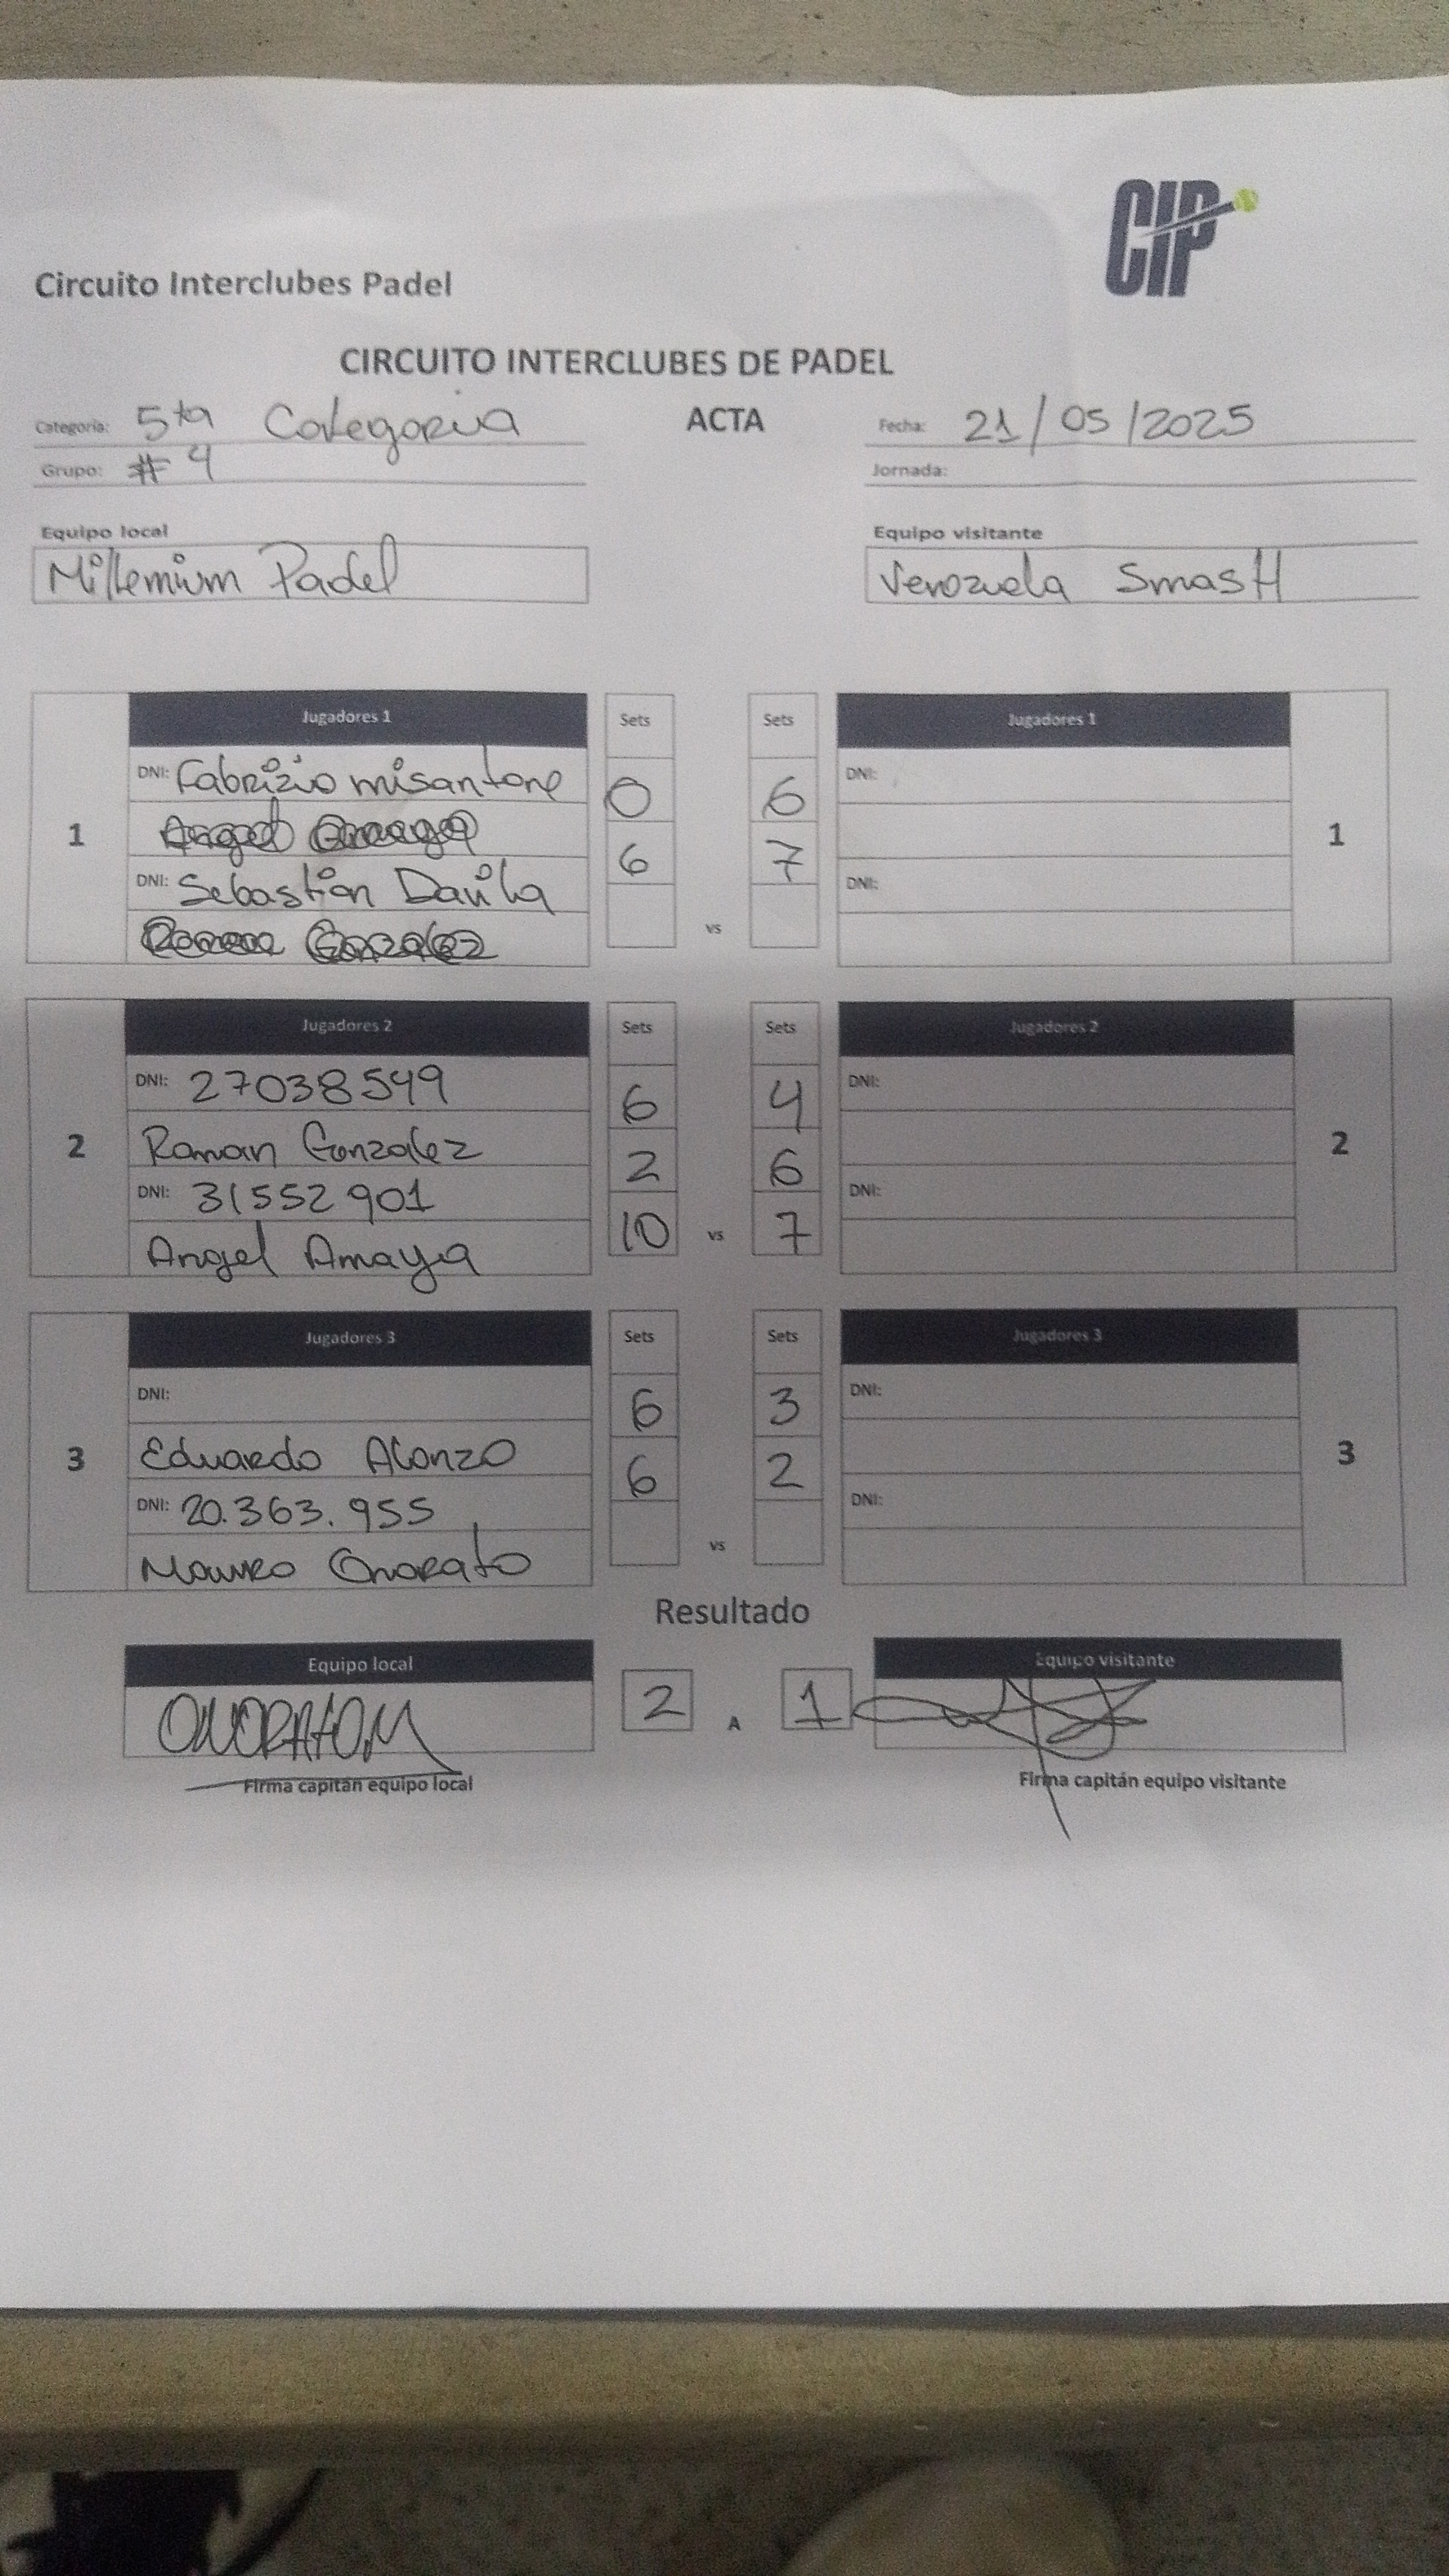 CIP
Circuito Interclubes Padel
CIRCUITO INTERCLUBES DE PADEL
Categoría: 5ta Categoria ACTA Fecha: 21/05/2025
Grupo: #4 Jornada:
Equipo local Equipo visitante
Millemium Padel Venezuela SmasH
Jugadores 1 Sets Sets Jugadores 1
DNI: Fabrizio misantone 0 6 DNI:
1 6 7 1
DNI: Sebastian Davila DNI:
vs
Jugadores 2 Sets Sets Jugadores 2
DNI: 27038549 6 4 DNI:
2 Roman Gonzalez 2 6 2
DNI: 31552901 DNI:
Angel Amaya 10 vs 7
Jugadores 3 Sets Sets Jugadores 3
DNI: 6 3 DNI:
3 Eduardo Alonzo 6 2 3
DNI: 20.363.955 DNI:
Mauro Onorato vs
Resultado
Equipo local 2 A 1 Equipo visitante
ONORATO.M
Firma capitán equipo local Firma capitán equipo visitante